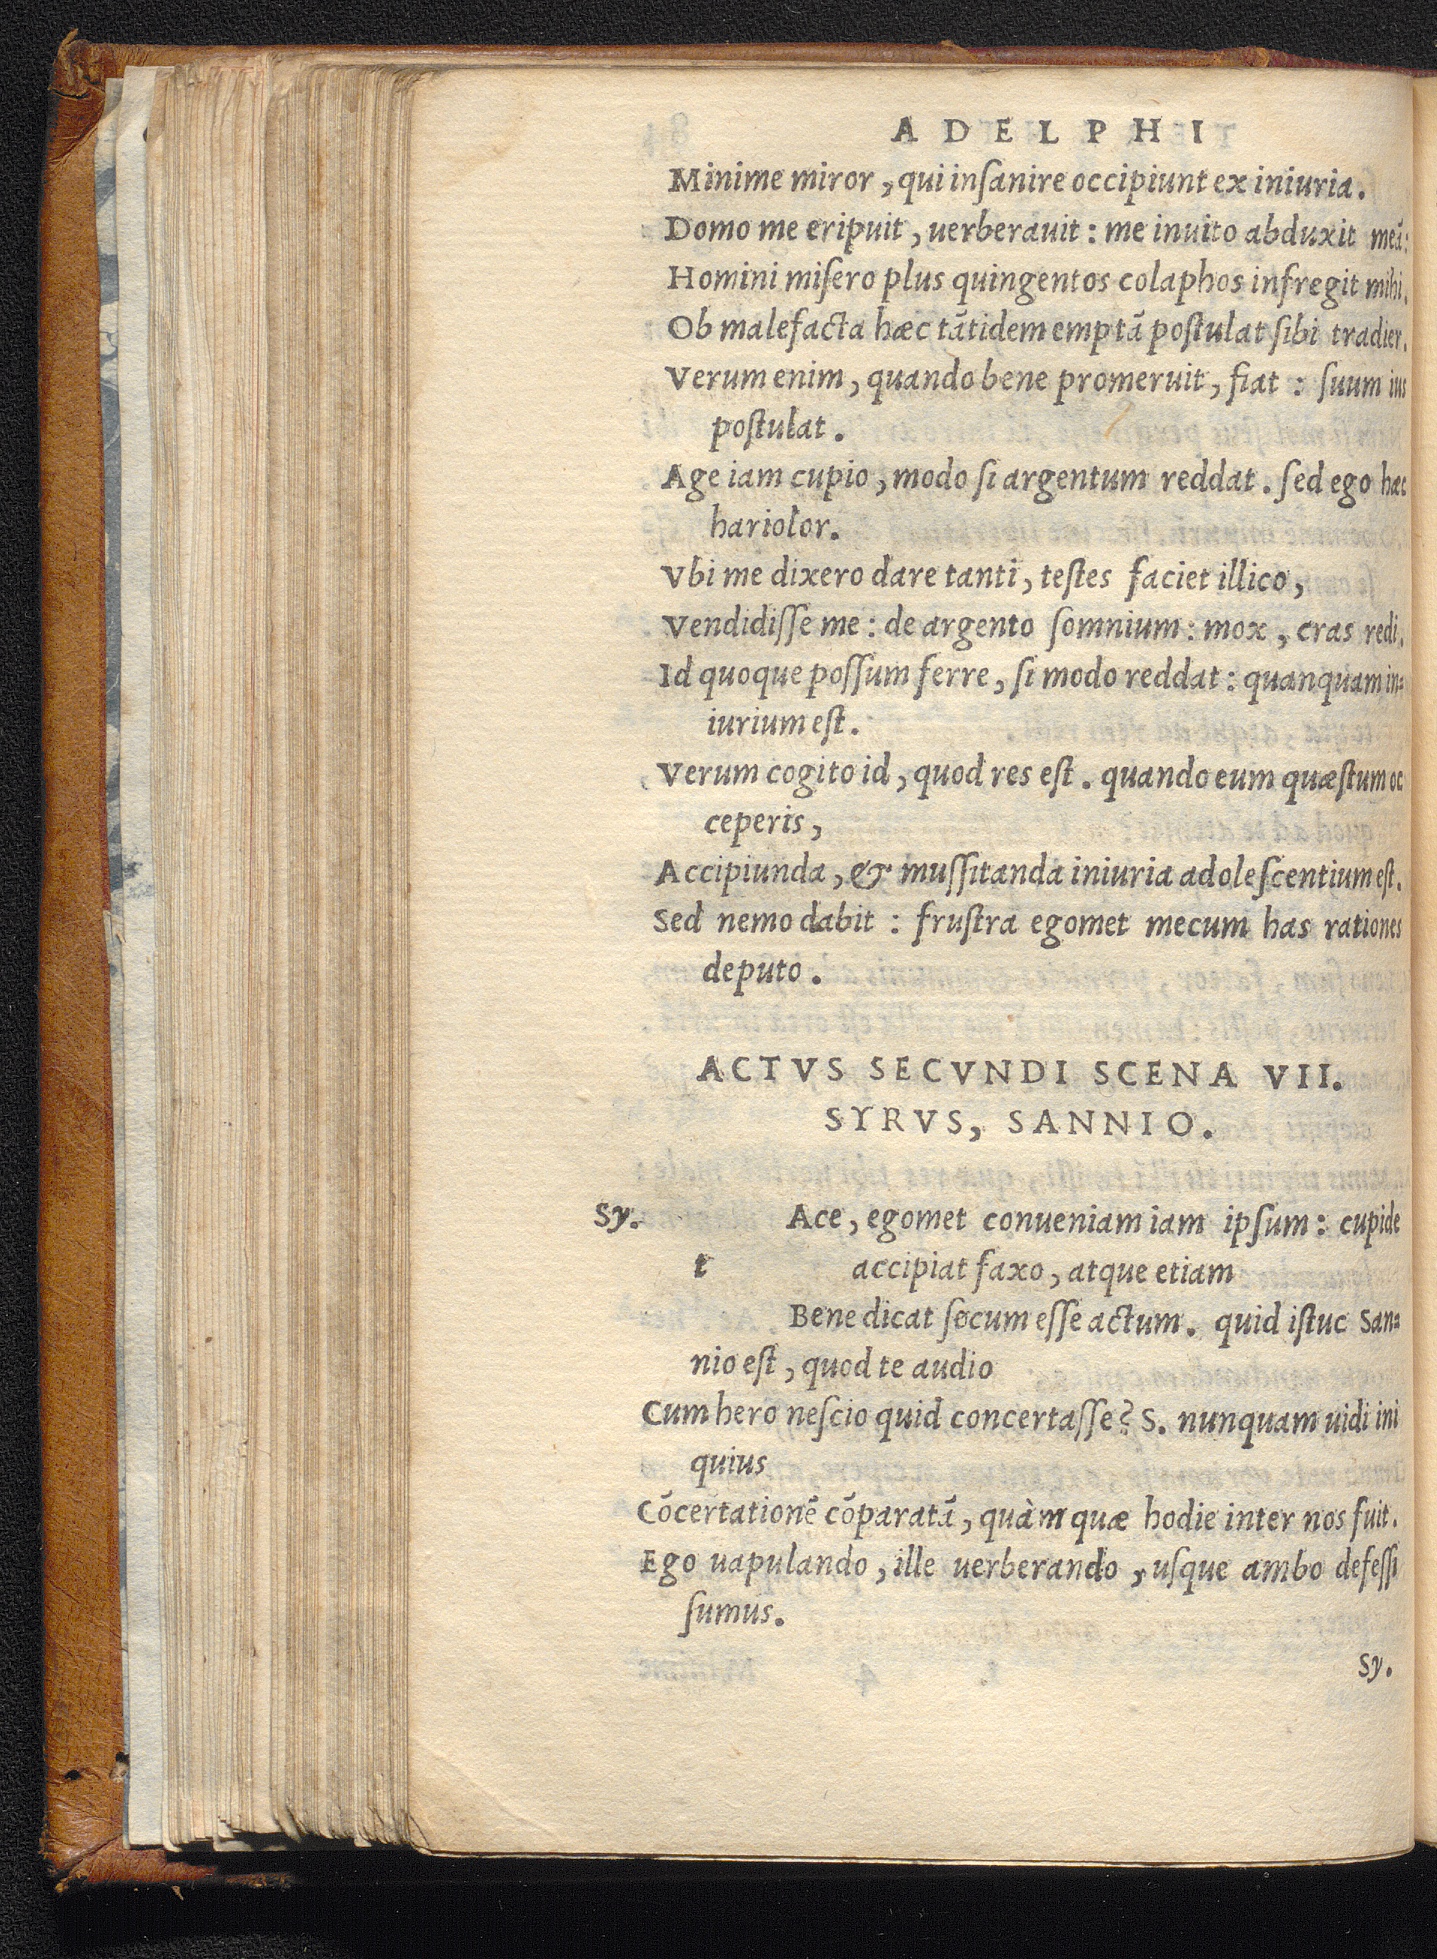 ADELPHI
Minime miror, qui insanire occipiunt ex iniuria.
Domo me eripuit, uerberauit: me inuito abduxit meā:
Homini misero plus quingentos colaphos infregit mihi.
Ob malefacta hæc tātidem emptā postulat sibi tradier.
Verum enim, quando bene promeruit, fiat: suum ius
postulat.
Age iam cupio, modo si argentum reddat. sed ego hæc
hariolor.
Vbi me dixero dare tanti, testes faciet illico,
Vendidisse me: de argento somnium: mox, cras redi.
Id quoque possum ferre, si modo reddat: quanquam in=
iurium est.
Verum cogito id, quod res est. quando eum quæstum oc
ceperis,
Accipiunda, & mussitanda iniuria adolescentium est.
Sed nemo dabit: frustra egomet mecum has rationes
deputo.
ACTVS SECVNDI SCENA VII.
SYRVS, SANNIO.
Sy. Ace, egomet conueniam iam ipsum: cupide
t accipiat faxo, atque etiam
Bene dicat secum esse actum. quid istuc San=
nio est, quod te audio
Cum hero nescio quid concertasse? S. nunquam uidi ini
quius
Cōcertationē cōparatā, quàm quæ hodie inter nos fuit.
Ego uapulando, ille uerberando, usque ambo defessi
sumus.
Sy.